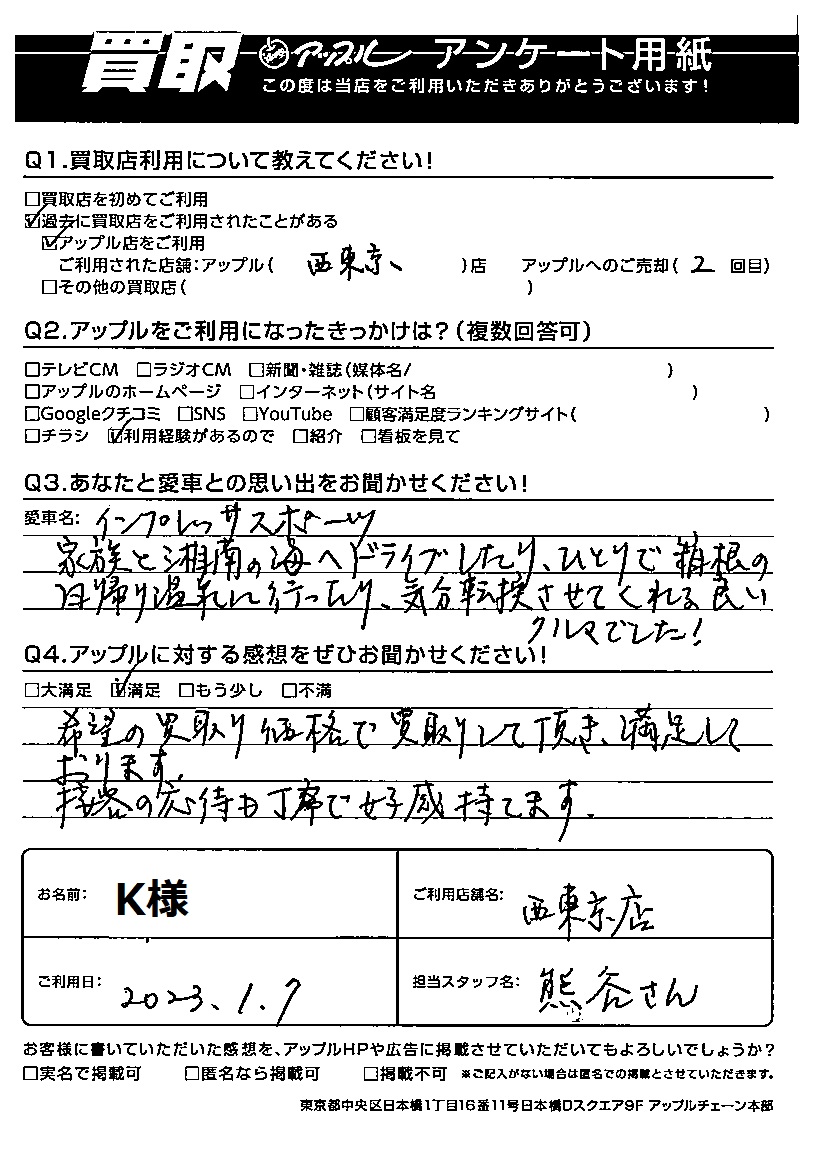 買取 アップル アンケート用紙
この度は当店をご利用いただきありがとうございます!
Q1.買取店利用について教えてください!
□買取店を初めてご利用
☑過去に買取店をご利用されたことがある
☑アップル店をご利用
ご利用された店舗:アップル( 西東京、 )店 アップルへのご売却( 2 回目)
□その他の買取店( )
Q2.アップルをご利用になったきっかけは?(複数回答可)
□テレビCM □ラジオCM □新聞・雑誌(媒体名/ )
□アップルのホームページ □インターネット(サイト名 )
□Googleクチコミ □SNS □YouTube □顧客満足度ランキングサイト( )
□チラシ ☑利用経験があるので □紹介 □看板を見て
Q3.あなたと愛車との思い出をお聞かせください!
愛車名: インプレッサスポーツ
家族と湘南の海へドライブしたり、ひとりで箱根の
日帰り温泉に行ったり、気分転換させてくれる良い
クルマでした!
Q4.アップルに対する感想をぜひお聞かせください!
□大満足 ☑満足 □もう少し □不満
希望の買取り価格で買取りして頂き、満足して
おります。
接客の応待も丁寧で好感持てます。
お名前: K様 ご利用店舗名: 西東京店
ご利用日: 2023.1.7 担当スタッフ名: 熊谷さん
お客様に書いていただいた感想を、アップルHPや広告に掲載させていただいてもよろしいでしょうか?
□実名で掲載可 □匿名なら掲載可 □掲載不可 ※ご記入がない場合は匿名での掲載とさせていただきます。
東京都中央区日本橋1丁目16番11号日本橋Dスクエア9F アップルチェーン本部